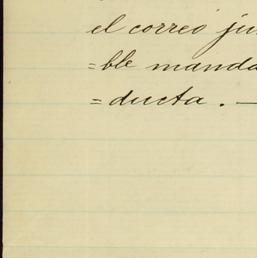 el correo ju
=ble manda
=ducta. —